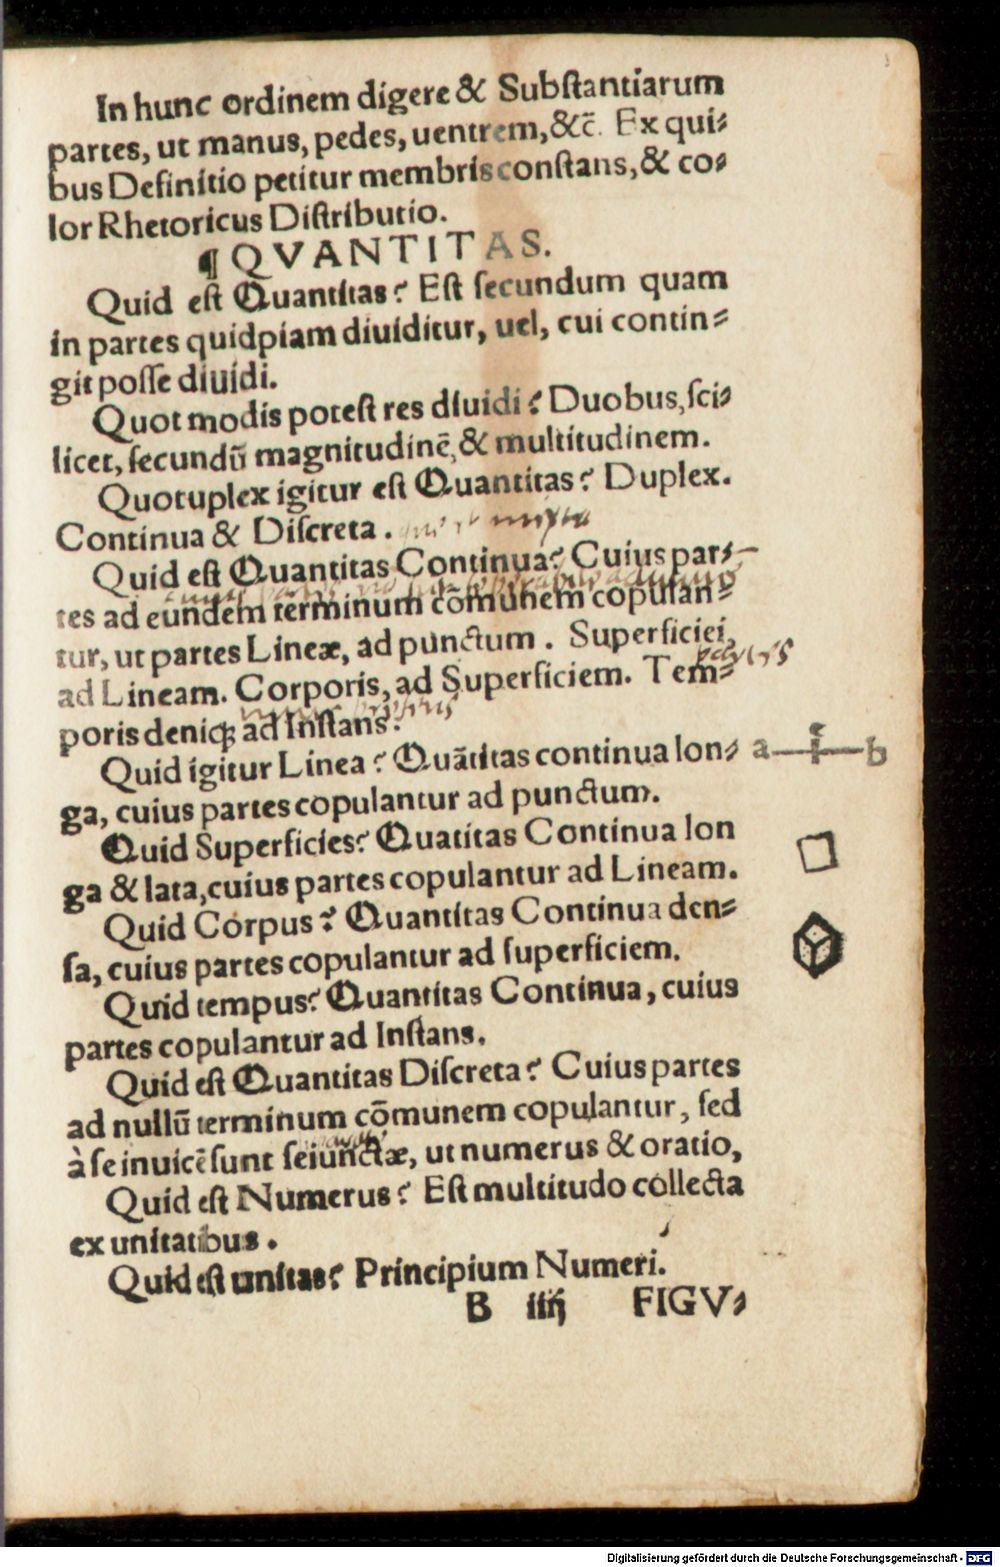 In hunc ordinem digere & Subſtantiarum
partes, ut manus, pedes, uentrem, &c̄. Ex qui⸗
bus Definitio petitur membris conſtans, & co⸗
lor Rhetoricus Diſtributio.
¶ QVANTITAS.
Quid eſt Quantitas? Eſt ſecundum quam
in partes quidpiam diuiditur, uel, cui contin⸗
git poſſe diuidi.
Quot modis poteſt res diuidi? Duobus, ſci⸗
licet, ſecundū magnitudinē, & multitudinem.
Quotuplex igitur eſt Quantitas? Duplex.
Continua & Diſcreta.
Quid eſt Quantitas Continua? Cuius par⸗
tes ad eundem terminum cōmunem copulan⸗
tur, ut partes Lineæ, ad punctum. Superficiei,
ad Lineam. Corporis, ad Superficiem. Tem⸗
poris deniqꝫ ad Inſtans.
Quid igitur Linea? Quātitas continua lon⸗ a f b
ga, cuius partes copulantur ad punctum.
Quid Superficies? Quatitas Continua lon
ga & lata, cuius partes copulantur ad Lineam.
Quid Corpus? Quantitas Continua den⸗
ſa, cuius partes copulantur ad ſuperficiem.
Quid tempus? Quantitas Continua, cuius
partes copulantur ad Inſtans.
Quid eſt Quantitas Diſcreta? Cuius partes
ad nullū terminum cōmunem copulantur, ſed
à ſe inuicē ſunt ſeiunctæ, ut numerus & oratio,
Quid eſt Numerus? Eſt multitudo collecta
ex unitatibus.
Quid eſt unitas? Principium Numeri.
B iiij FIGV⸗
Digitalisierung gefördert durch die Deutsche Forschungsgemeinschaft - DFG